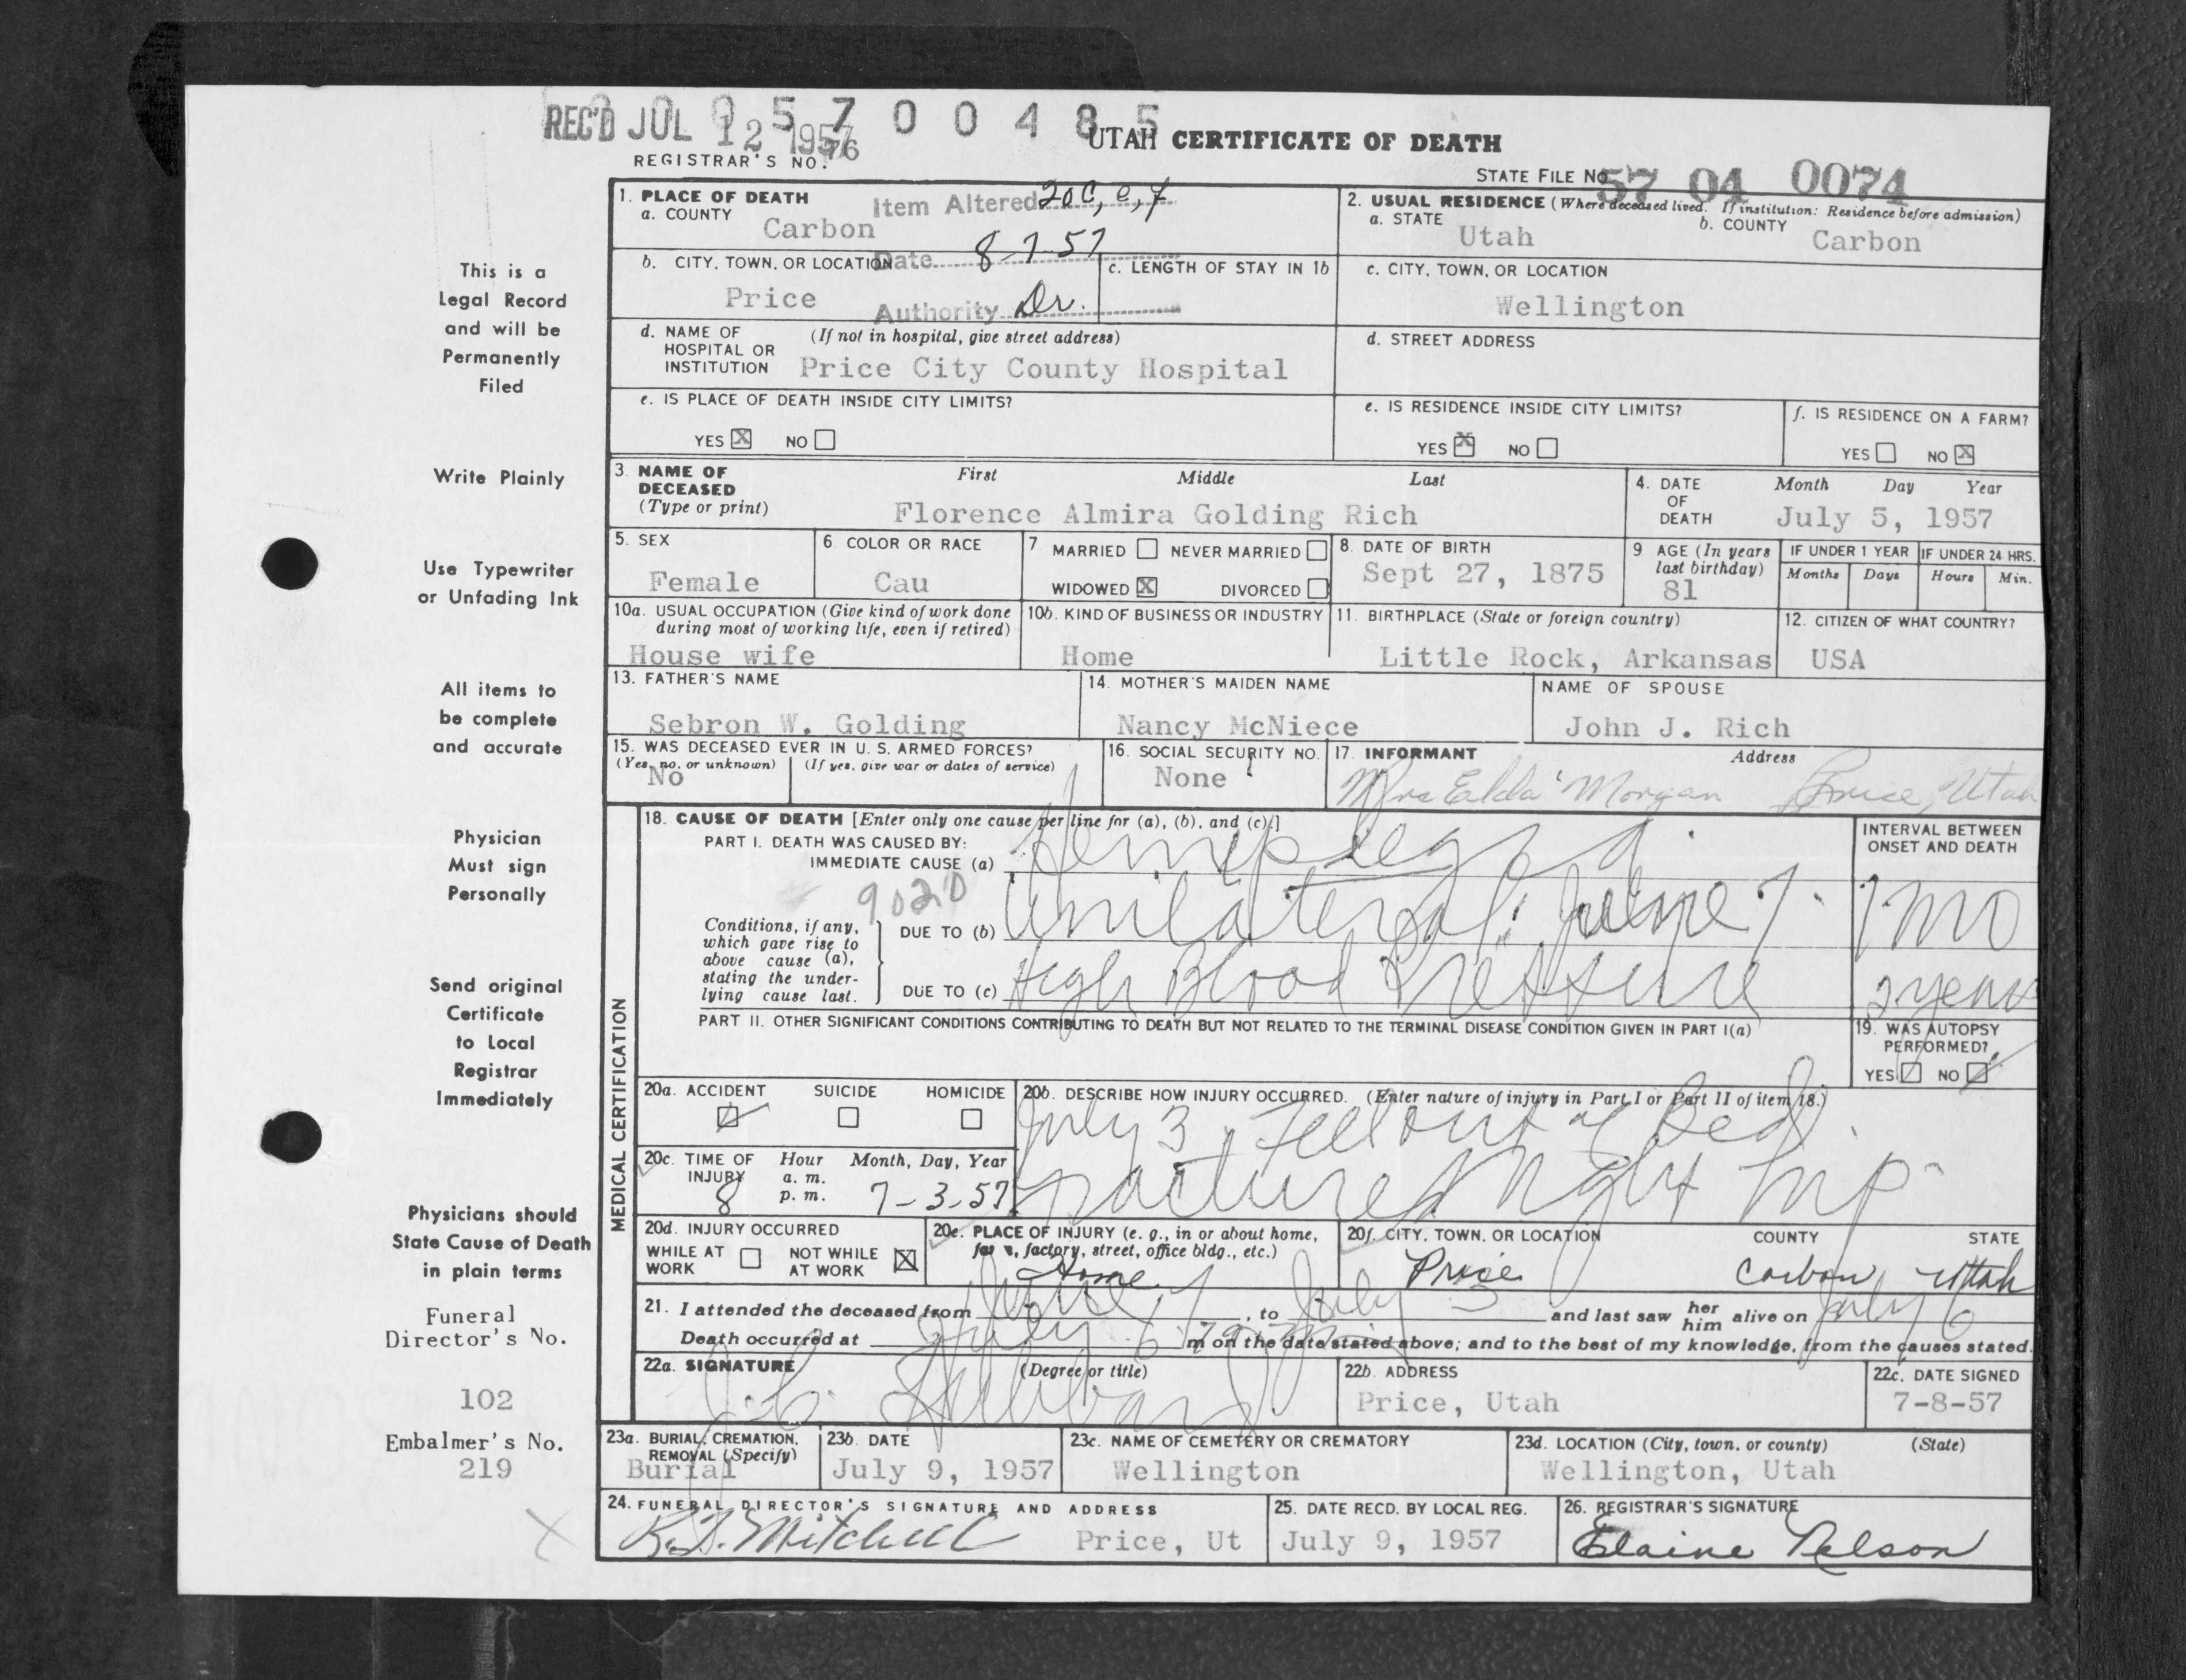 REC'D JUL 12 1957
5 7 0 0 4 8 5
UTAH CERTIFICATE OF DEATH
REGISTRAR'S NO. 76
STATE FILE NO. 57 04 0074
This is a
Legal Record
and will be
Permanently
Filed
Write Plainly
Use Typewriter
or Unfading Ink
All items to
be complete
and accurate
Physician
Must sign
Personally
Send original
Certificate
to Local
Registrar
Immediately
Physicians should
State Cause of Death
in plain terms
Funeral
Director's No.
102
Embalmer's No.
219
1. PLACE OF DEATH
a. COUNTY
Carbon
Item Altered 20C, e, f
Date 8-7-57
Authority Dr.
b. CITY, TOWN, OR LOCATION
Price
c. LENGTH OF STAY IN 1b
d. NAME OF HOSPITAL OR INSTITUTION
(If not in hospital, give street address)
Price City County Hospital
e. IS PLACE OF DEATH INSIDE CITY LIMITS?
YES X NO
2. USUAL RESIDENCE (Where deceased lived. If institution: Residence before admission)
a. STATE
Utah
b. COUNTY
Carbon
c. CITY, TOWN, OR LOCATION
Wellington
d. STREET ADDRESS
e. IS RESIDENCE INSIDE CITY LIMITS?
YES X NO
f. IS RESIDENCE ON A FARM?
YES NO X
3. NAME OF DECEASED (Type or print)
First Middle Last
Florence Almira Golding Rich
4. DATE OF DEATH
Month Day Year
July 5, 1957
5. SEX
Female
6. COLOR OR RACE
Cau
7 MARRIED NEVER MARRIED
WIDOWED X DIVORCED
8. DATE OF BIRTH
Sept 27, 1875
9 AGE (In years last birthday)
81
IF UNDER 1 YEAR
Months Days
IF UNDER 24 HRS.
Hours Min.
10a. USUAL OCCUPATION (Give kind of work done during most of working life, even if retired)
House wife
10b. KIND OF BUSINESS OR INDUSTRY
Home
11. BIRTHPLACE (State or foreign country)
Little Rock, Arkansas
12. CITIZEN OF WHAT COUNTRY?
USA
13. FATHER'S NAME
Sebron W. Golding
14. MOTHER'S MAIDEN NAME
Nancy McNiece
NAME OF SPOUSE
John J. Rich
15. WAS DECEASED EVER IN U. S. ARMED FORCES?
(Yes, no, or unknown) (If yes, give war or dates of service)
No
16. SOCIAL SECURITY NO.
None
17. INFORMANT Address
Mrs Elda Morgan Price, Utah
MEDICAL CERTIFICATION
18. CAUSE OF DEATH [Enter only one cause per line for (a), (b), and (c).]
PART I. DEATH WAS CAUSED BY:
IMMEDIATE CAUSE (a) Hemiplegia
9020
Conditions, if any, which gave rise to above cause (a), stating the underlying cause last.
DUE TO (b) Unilateral June 7
DUE TO (c) High Blood Pressure
INTERVAL BETWEEN ONSET AND DEATH
1 mo
2 years
PART II. OTHER SIGNIFICANT CONDITIONS CONTRIBUTING TO DEATH BUT NOT RELATED TO THE TERMINAL DISEASE CONDITION GIVEN IN PART I(a)
19. WAS AUTOPSY PERFORMED?
YES NO
20a. ACCIDENT SUICIDE HOMICIDE
20b. DESCRIBE HOW INJURY OCCURRED. (Enter nature of injury in Part I or Part II of item 18.)
July 3 Fell out of Bed.
Fractured Right hip
20c. TIME OF INJURY
Hour a. m. p. m.
Month, Day, Year
8 7-3-57
20d. INJURY OCCURRED
WHILE AT WORK NOT WHILE AT WORK X
20e. PLACE OF INJURY (e. g., in or about home, farm, factory, street, office bldg., etc.)
Home
20f. CITY, TOWN, OR LOCATION COUNTY STATE
Price Carbon Utah
21. I attended the deceased from June 7, to July 3 and last saw her him alive on July 6
Death occurred at July 6 m on the date stated above; and to the best of my knowledge, from the causes stated.
22a. SIGNATURE (Degree or title)
J. C. Hubbard
22b. ADDRESS
Price, Utah
22c. DATE SIGNED
7-8-57
23a. BURIAL, CREMATION, REMOVAL (Specify)
Burial
23b. DATE
July 9, 1957
23c. NAME OF CEMETERY OR CREMATORY
Wellington
23d. LOCATION (City, town, or county) (State)
Wellington, Utah
24. FUNERAL DIRECTOR'S SIGNATURE AND ADDRESS
R. G. Mitchell Price, Ut
25. DATE RECD. BY LOCAL REG.
July 9, 1957
26. REGISTRAR'S SIGNATURE
Elaine Nelson